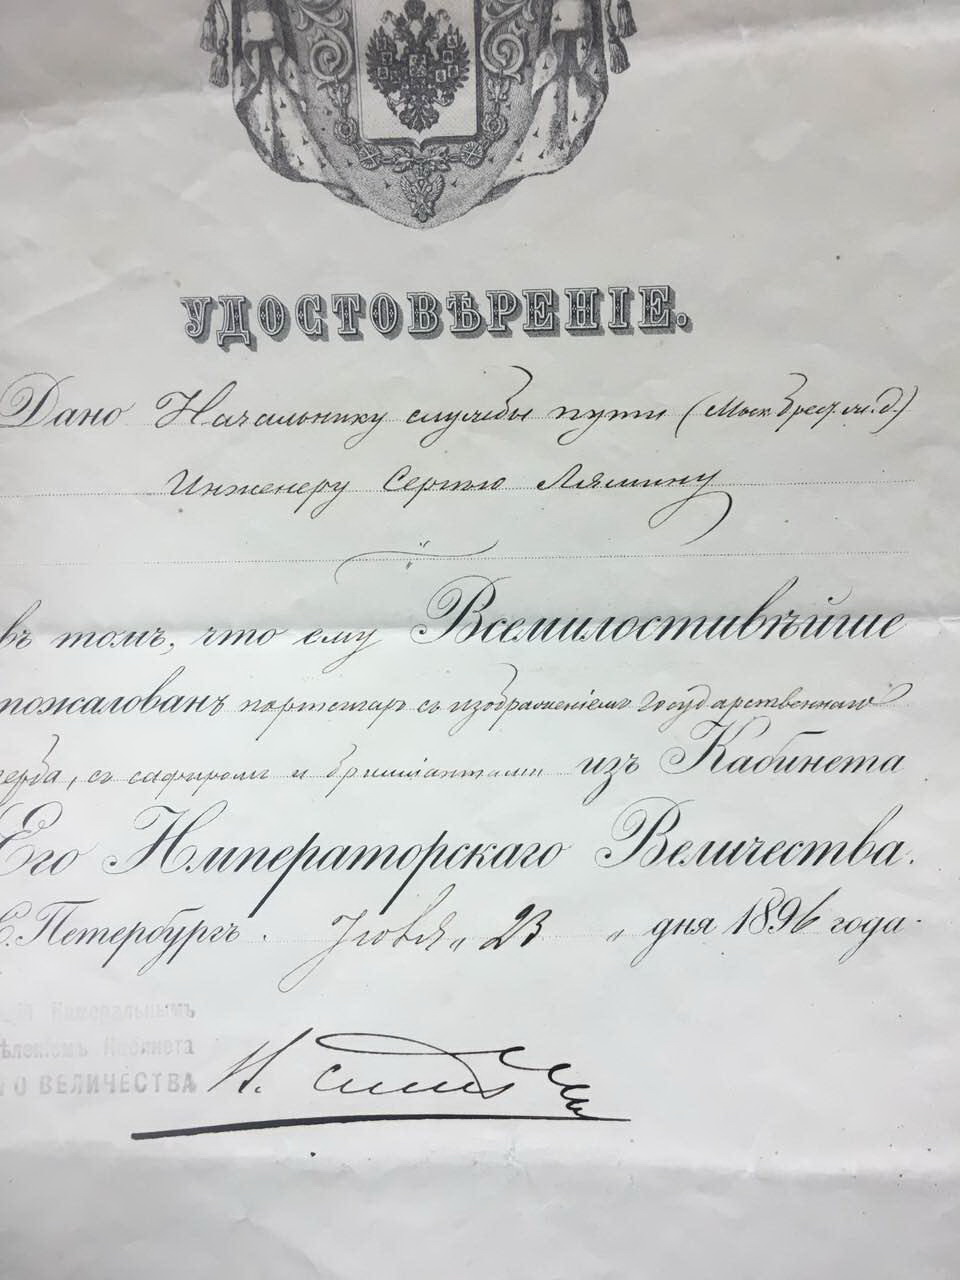 УДОСТОВѢРЕНІЕ.
Дано Начальнику службы пути (Моск Брест. ж. д.)
Инженеру Сергѣю Лямину
въ томъ, что ему Всемилостивѣйше
пожалованъ портсигаръ съ изображеніемъ Государственнаго
герба, съ сафиромъ и бриліантами изъ Кабинета
Его Императорскаго Величества.
С. Петербургъ. Іюня „ 23 „ дня 1896 года.
Камеральнымъ
Кабинета
ВЕЛИЧЕСТВА
Н.